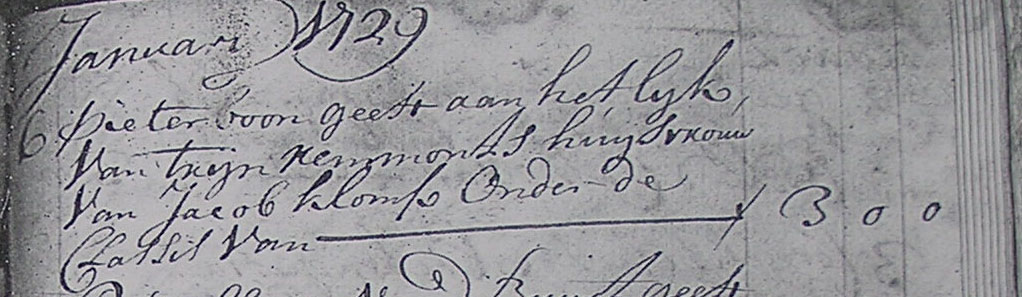 Januarij 1729
6 Pieter boon geeft aan het lyk,
Van trijn Remmonts huijsvrouw
Van Jacob klomp Onder de
Classis Van f 3 0 0
geeft